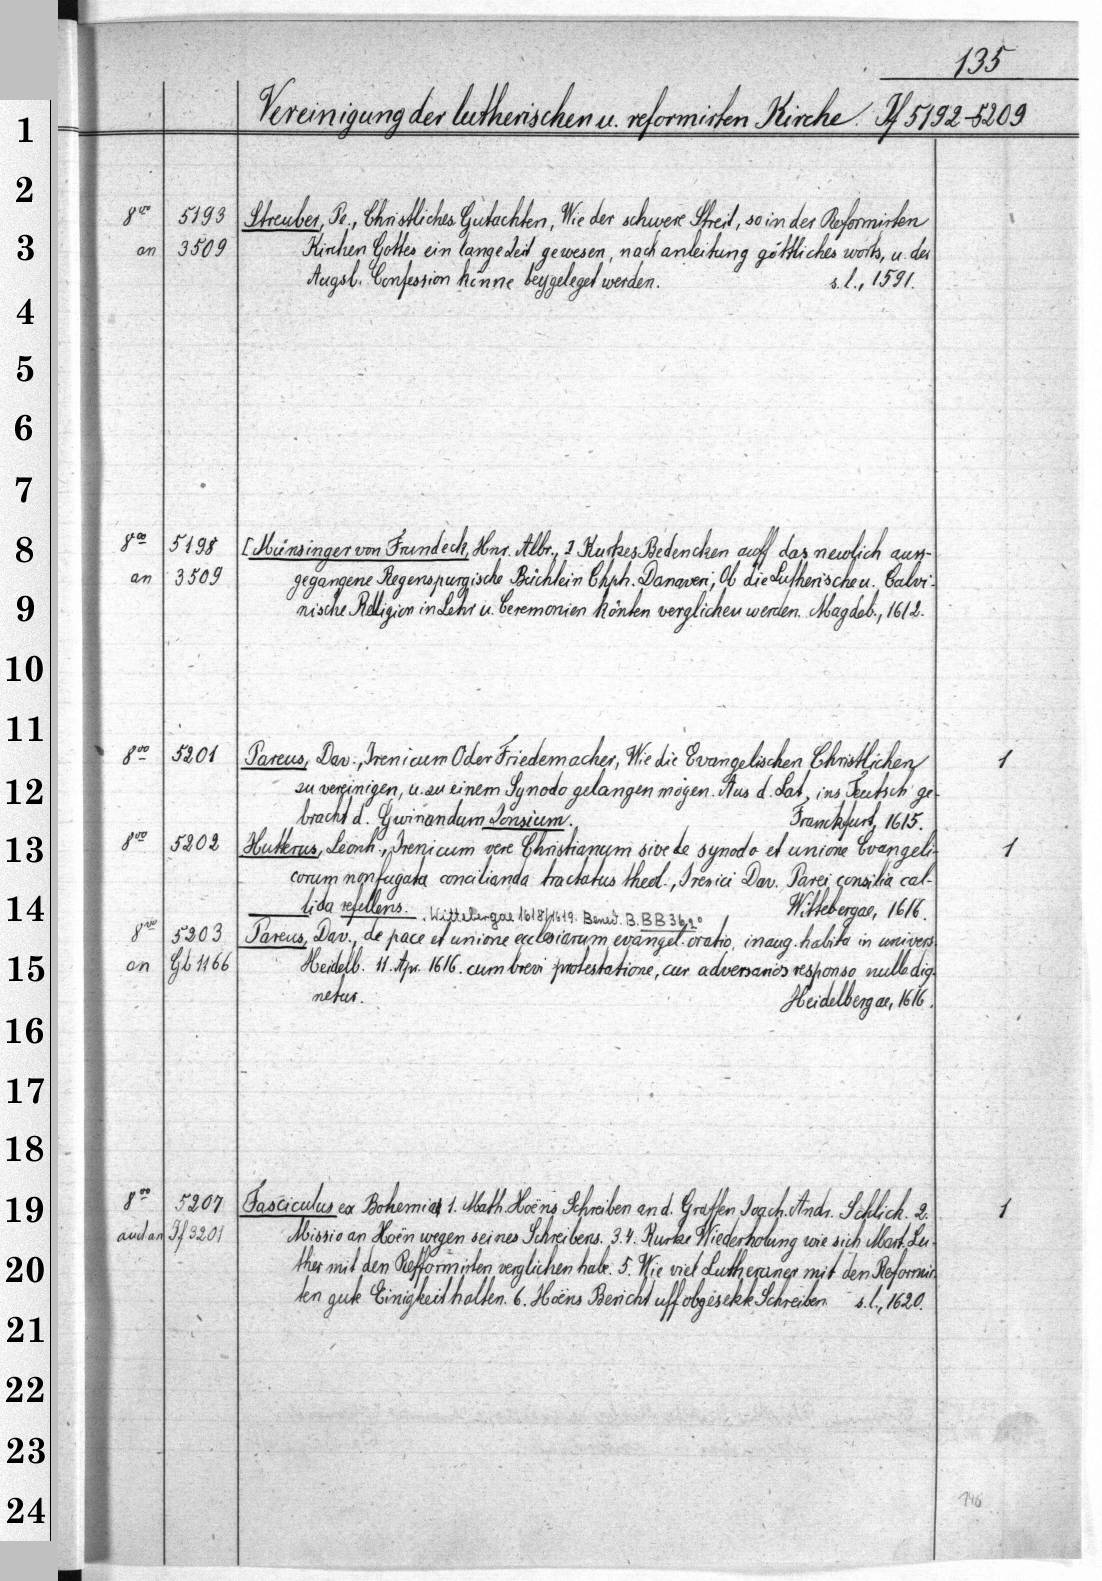 135
Vereinigung der lutherischen u. reformirten Kirche. If 5192-5209
1
2
3
4
5
6
7
8
9
10
11
12
13
14
15
16
17
18
19
20
21
22
23
24
8vo 5193 Streuber, Pe., Christliches Gutachten, Wie der schwere Streit, so in der Reformirten
an 3509 Kirchen Gottes ein lange Zeit gewesen, nach anleitung göttliches worts, u. der
Augsb. Confession könne beygeleget werden. s. l., 1591.
8vo 5198 [Münsinger von Frundeck, Hnr. Albr., ] Kurtzes Bedencken auff das newlich auss-
an 3509 gegangene Regenspurgische Büchlein Chph. Donaveri; Ob die Lutherische u. Calvi-
nische Religion in Lehr u. Ceremonien könten verglichen werden. Magdeb., 1612.
8vo 5201 Pareus, Dav., Irenicum Oder Friedemacher, Wie die Evangelischen Christlichen 1
zu vereinigen, u. zu einem Synodo gelangen mögen. Aus d. Lat. ins Teutsch ge-
bracht d. Gwinandum Zonsium. Franckfurt, 1615.
8vo 5202 Hutterus, Leonh., Irenicum vere Christianum sive de synodo et unione Evangeli- 1
corum non fugata concilianda tractatus theol., Irenici Dav. Parei consilia cal-
lida refellens. Wittebergae, 1616.
Wittebergae 1618/1619. Bened. B. BB 362°
8vo 5203 Pareus, Dav., de pace et unione ecclesiarum evangel. oratio, inaug. habita in univers.
an Gb 1166 Heidelb. 11. Apr. 1616. cum brevi protestatione, cur adversarios responso nullo dig-
netur. Heidelbergae, 1616.
8vo 5207 Fasciculus ex Bohemia 1. Math. Hoëns Schreiben an d. Graffen Joach. Andr. Schlick. 2. 1
and an If 3201 Missio an Hoën wegen seines Schreibens. 3.4. Kurtze Wiederholung wie sich Mart. Lu-
ther mit den Refformirten verglichen habe. 5. Wie viel Lutheraner mit den Reformir-
ten gute Einigkeit halten. 6. Hoëns Bericht uff obgesetzte Schreiben. s. l., 1620.
146